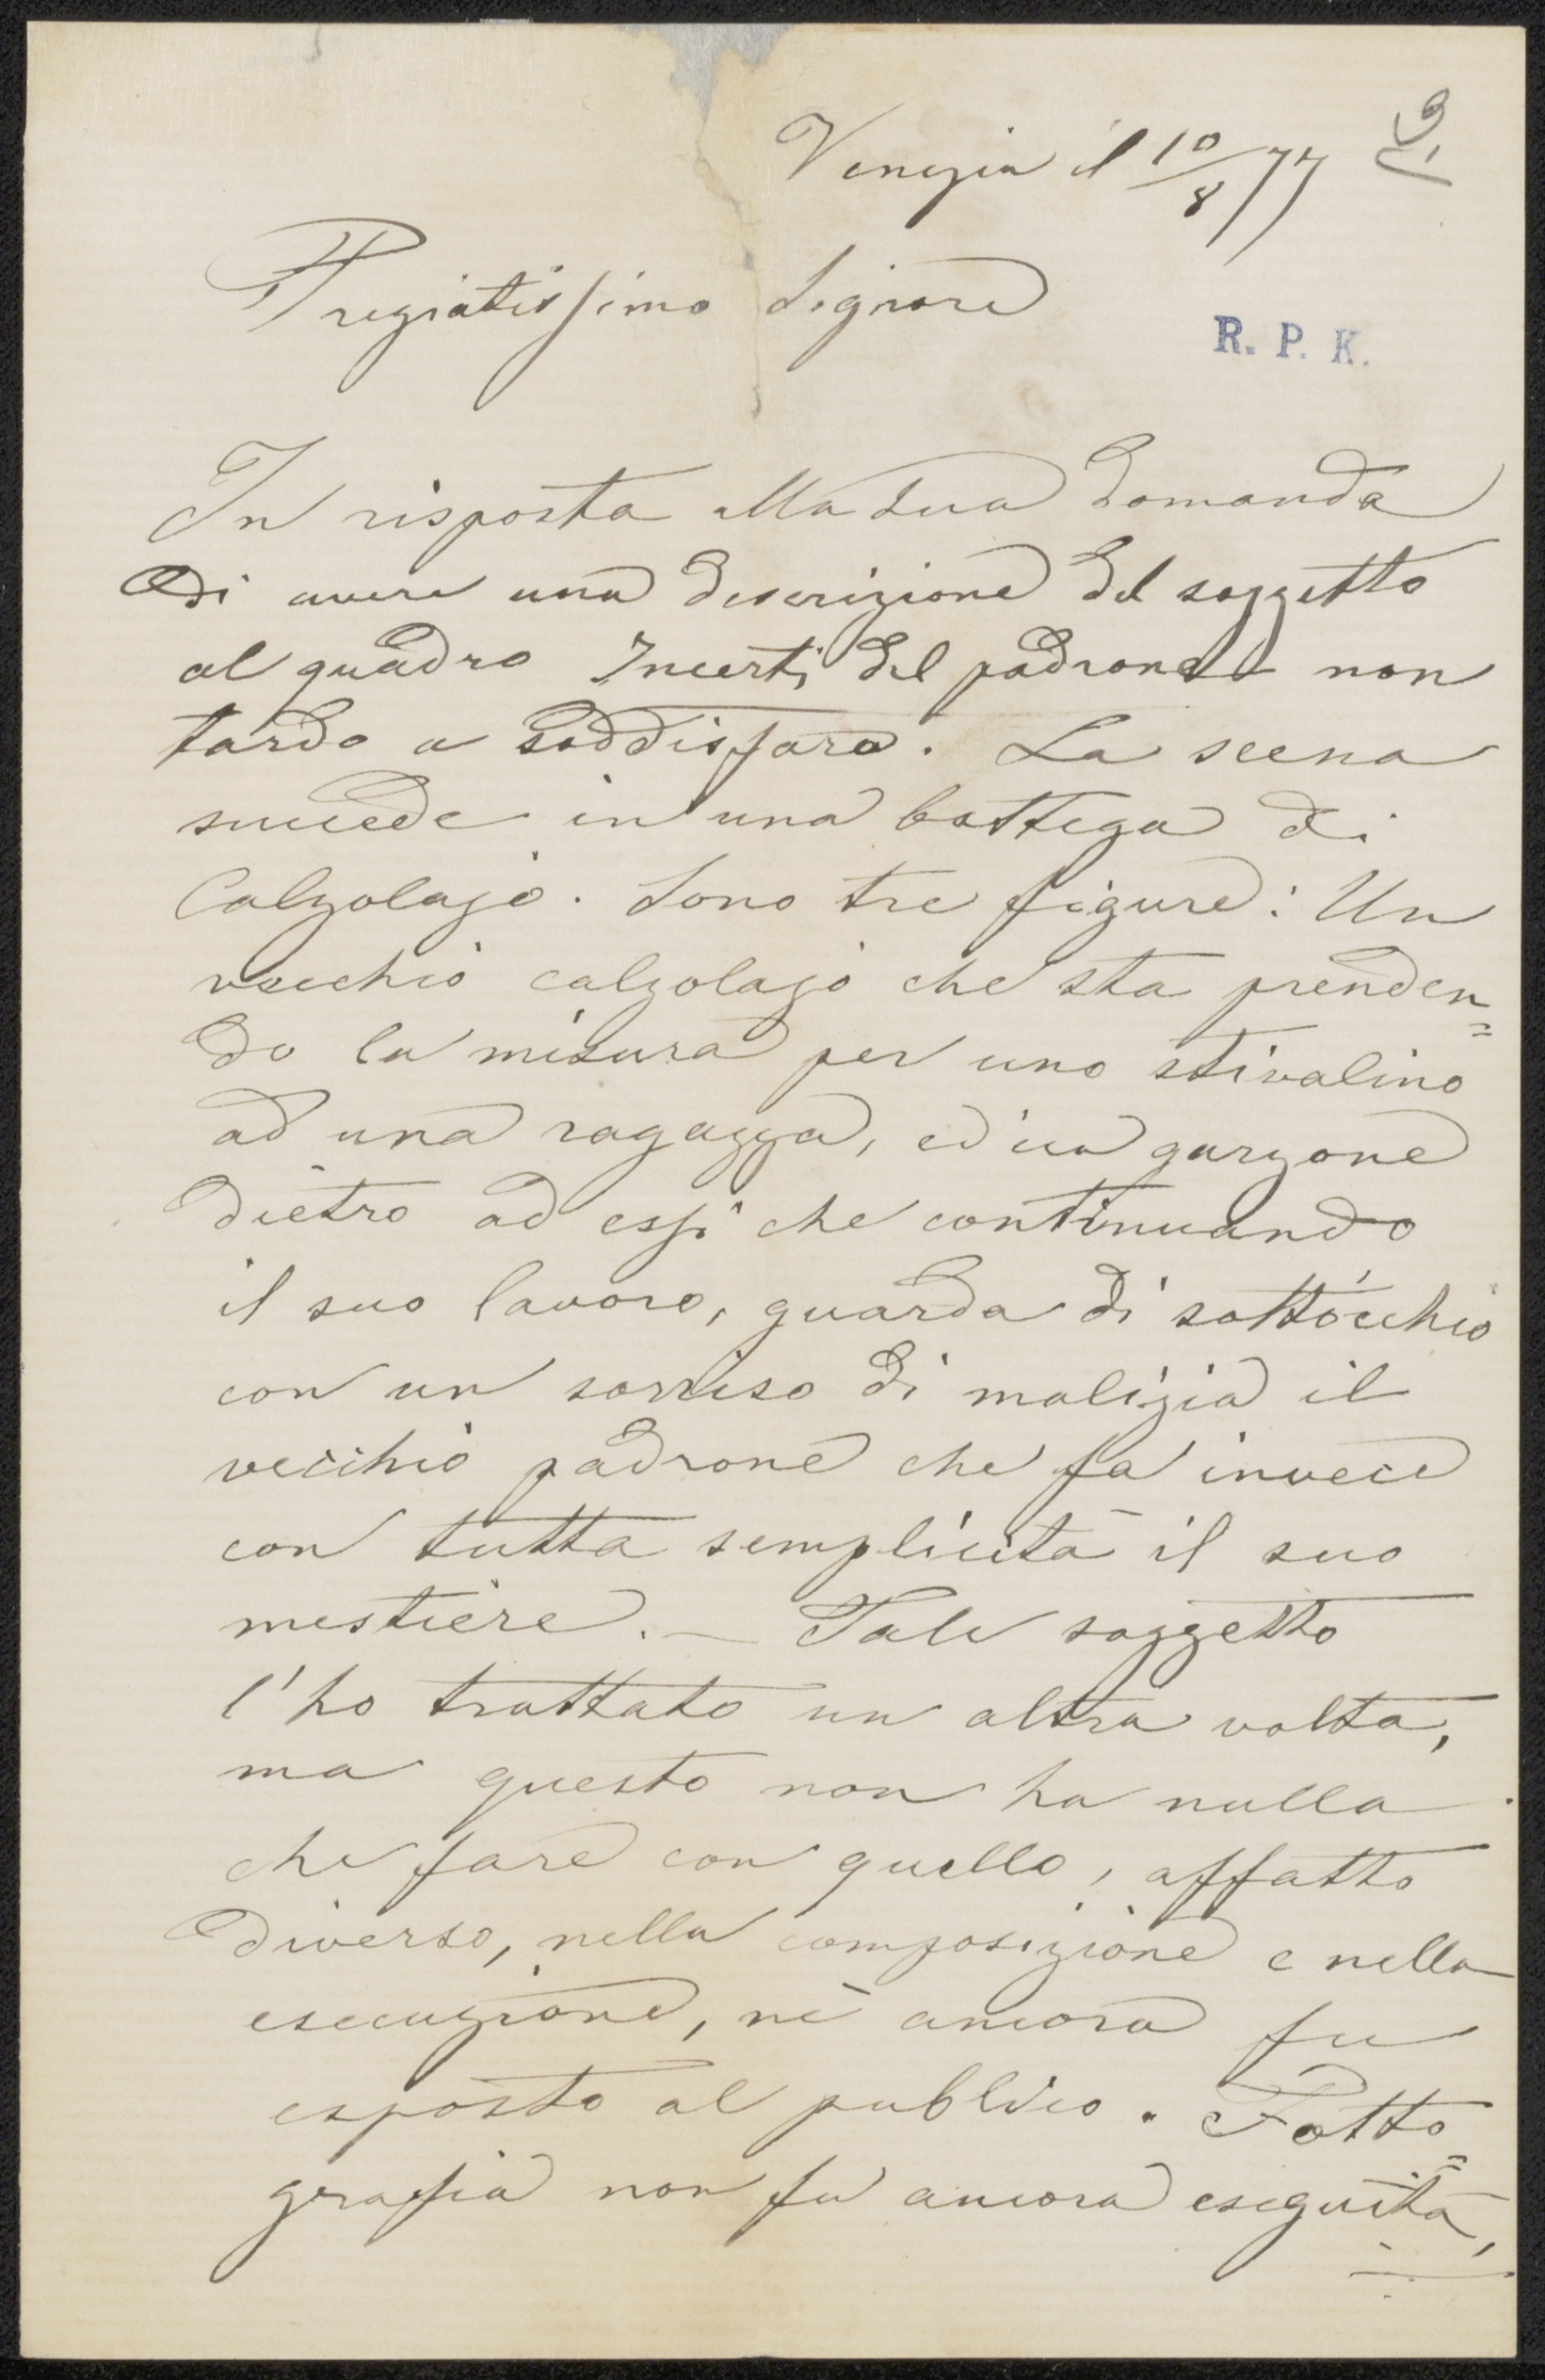 Venezia il 10/8/77
Pregiatissimo Signore
R. P. K.
In risposta alla Sua domanda
di avere una descrizione del soggetto
al quadro Incerti del padrone non
tardo a soddisfare. La scena
succede in una bottega di
Calzolajo. Sono tre figure: Un
vecchio calzolajo che sta prenden=
do la misura per uno stivalino
ad una ragazza, ed un garzone
dietro ad essi che continuando
il suo lavoro, guarda di sott'occhio
con un sorriso di malizia il
vecchio padrone che fa invece
con tutta semplicità il suo
mestiere. — Tale soggetto
l'ho trattato un altra volta,
ma questo non ha nulla
che fare con quello, affatto
diverso, nella composizione e nella
esecuzione, nè ancora fu
esposto al publico. Fotto=
grafia non fu ancora eseguita,